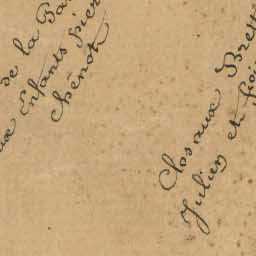 de la
aux Enfants pier
Chénot
Clos aux Brest
Julien et